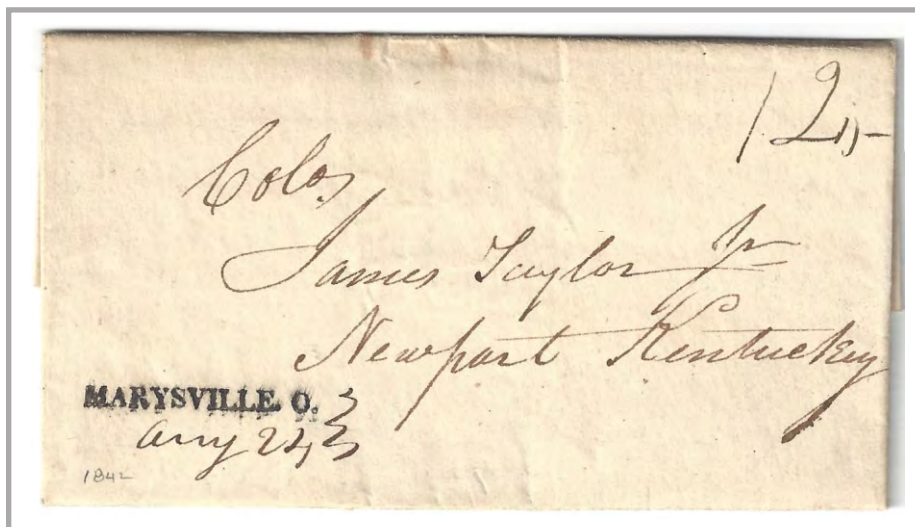 12
Colo.
James Taylor Jr
Newport Kentucky
MARYSVILLE. O.
Aug 24
1842